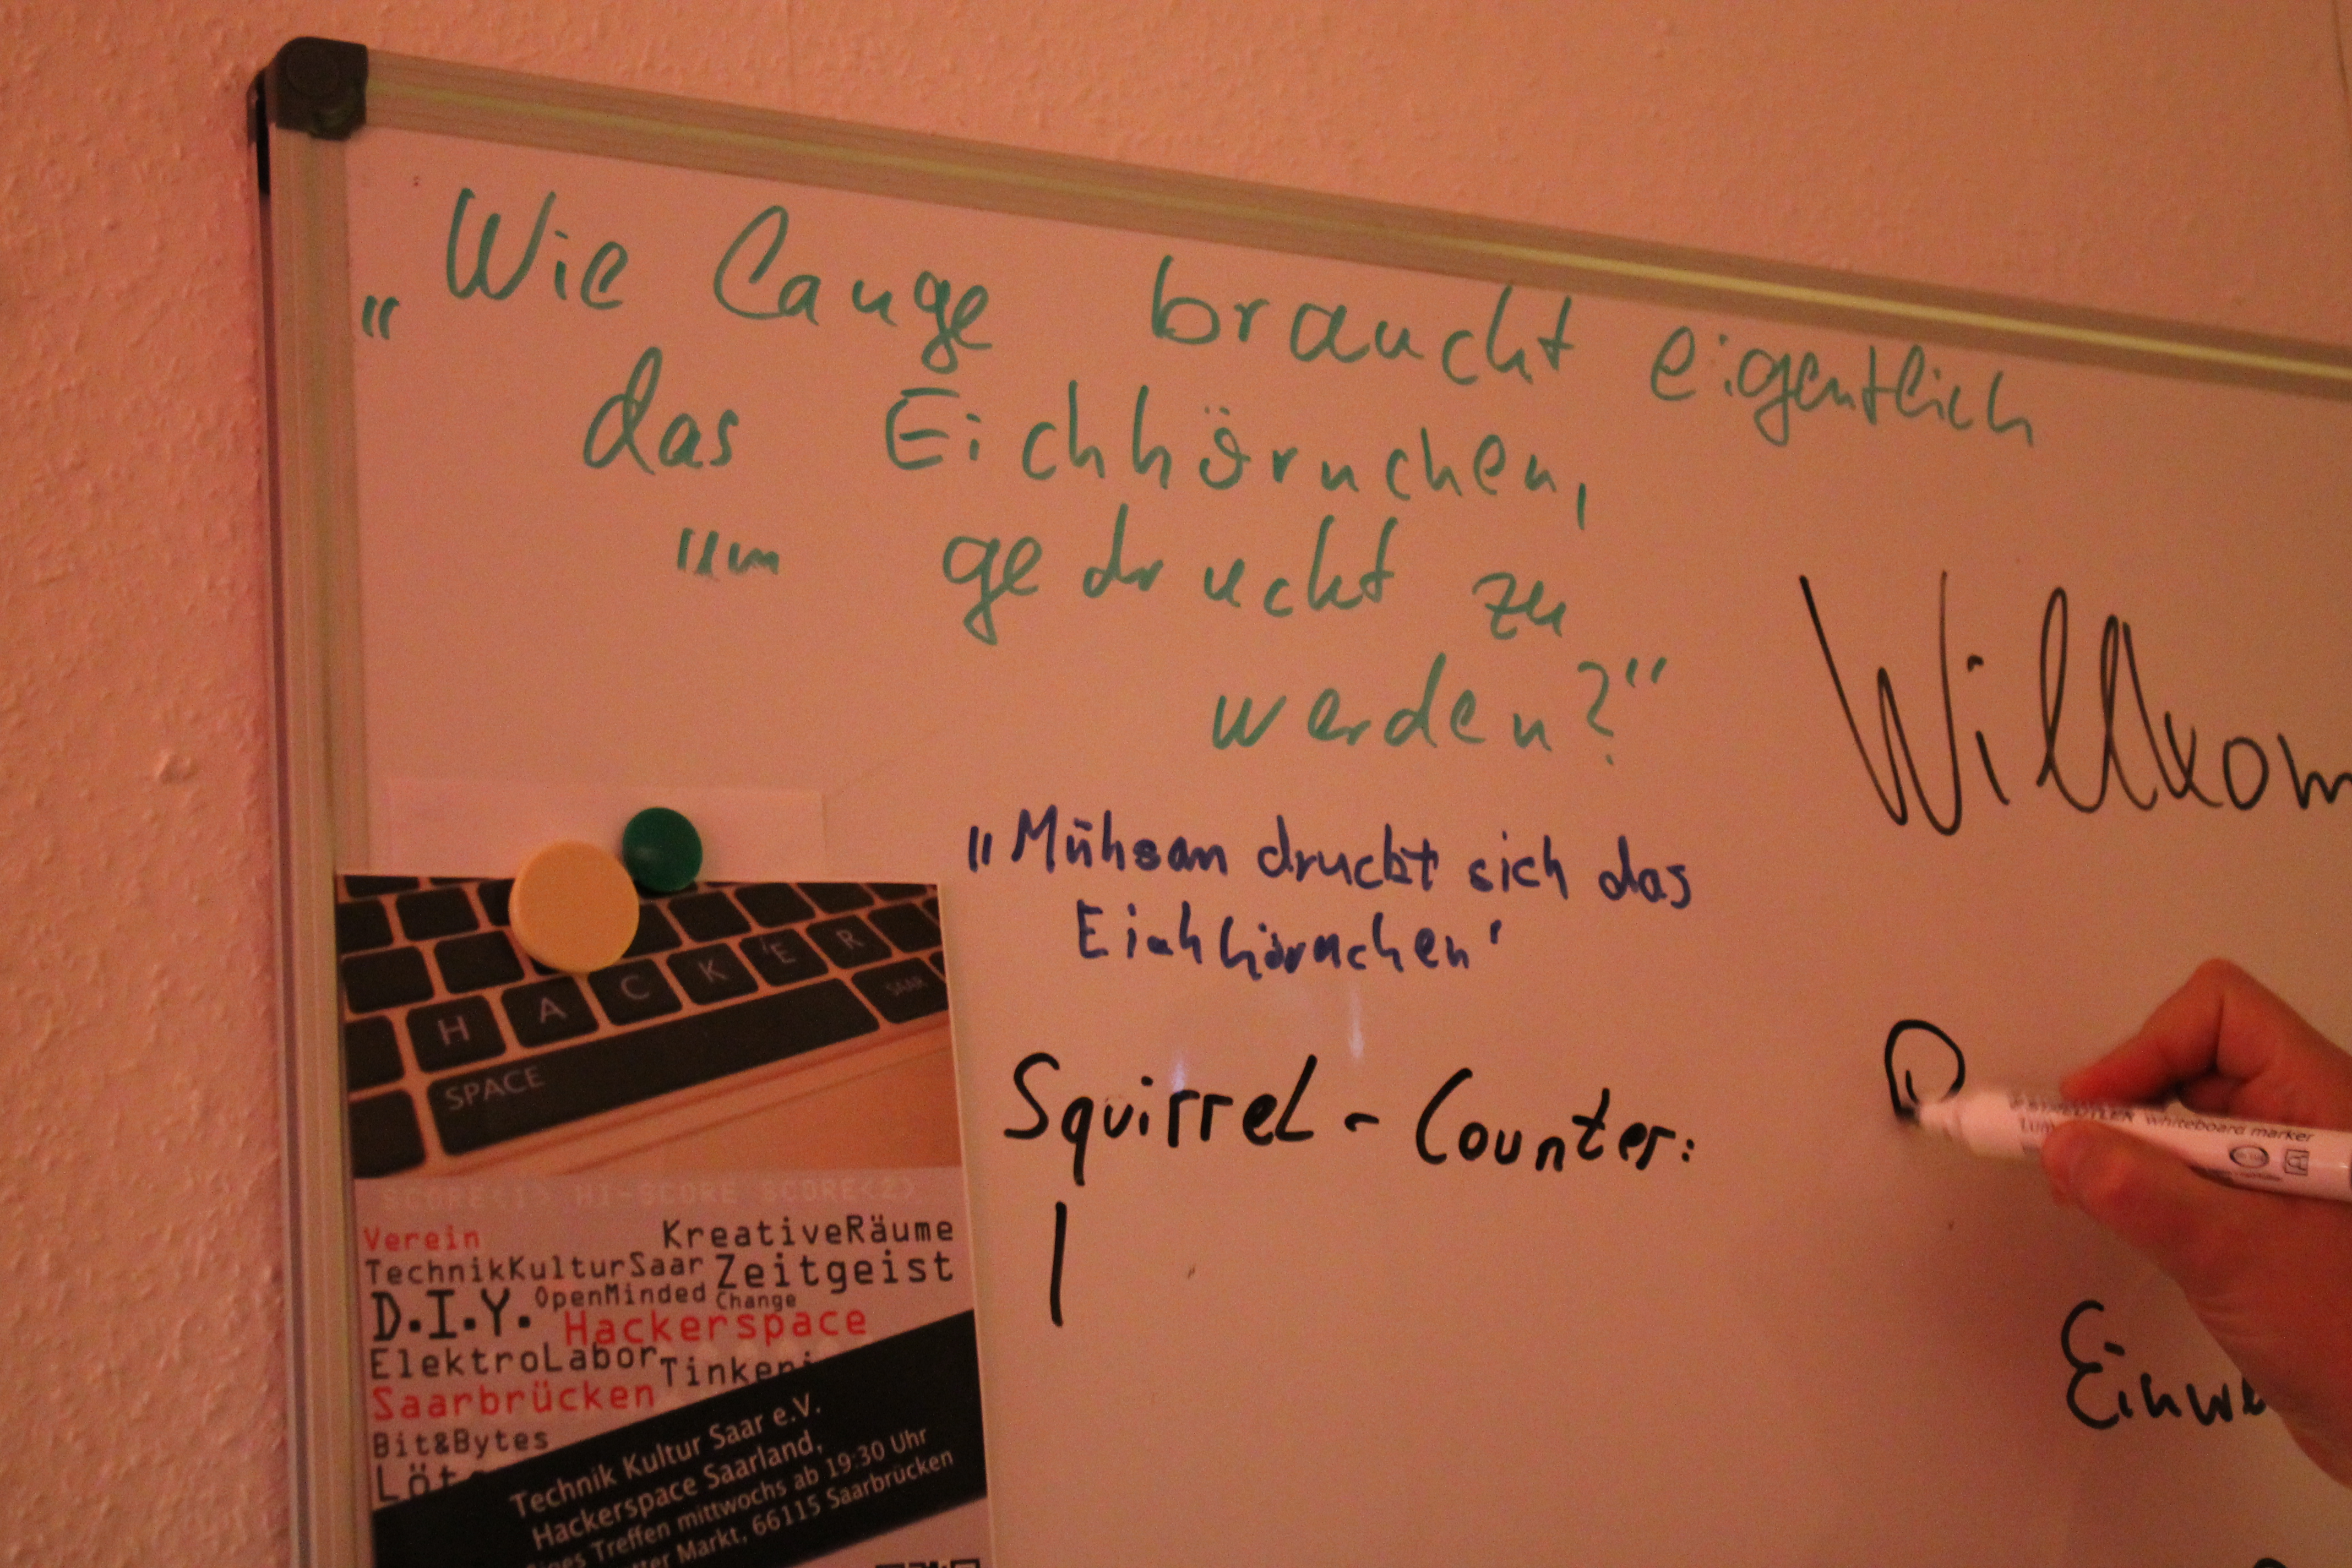 „Wie lange braucht eigentlich
das Eichhörnchen,
um gedruckt zu
werden?“
Willkom
„Mühsam druckt sich das
Eichhörnchen‘
Squirrel - Counter:
|
Einwe
H A C K 'E R
SPACE SAAR
SCORE<1> HI-SCORE SCORE<2>
Verein KreativeRäume
TechnikKulturSaar Zeitgeist
D.I.Y. OpenMinded Change
Hackerspace
ElektroLabor Tinkeri
Saarbrücken
Bit&Bytes
Löt
Technik Kultur Saar e.V.
Hackerspace Saarland,
Treffen mittwochs ab 19:30 Uhr
Markt, 66115 Saarbrücken
STAEDTLER whiteboard marker